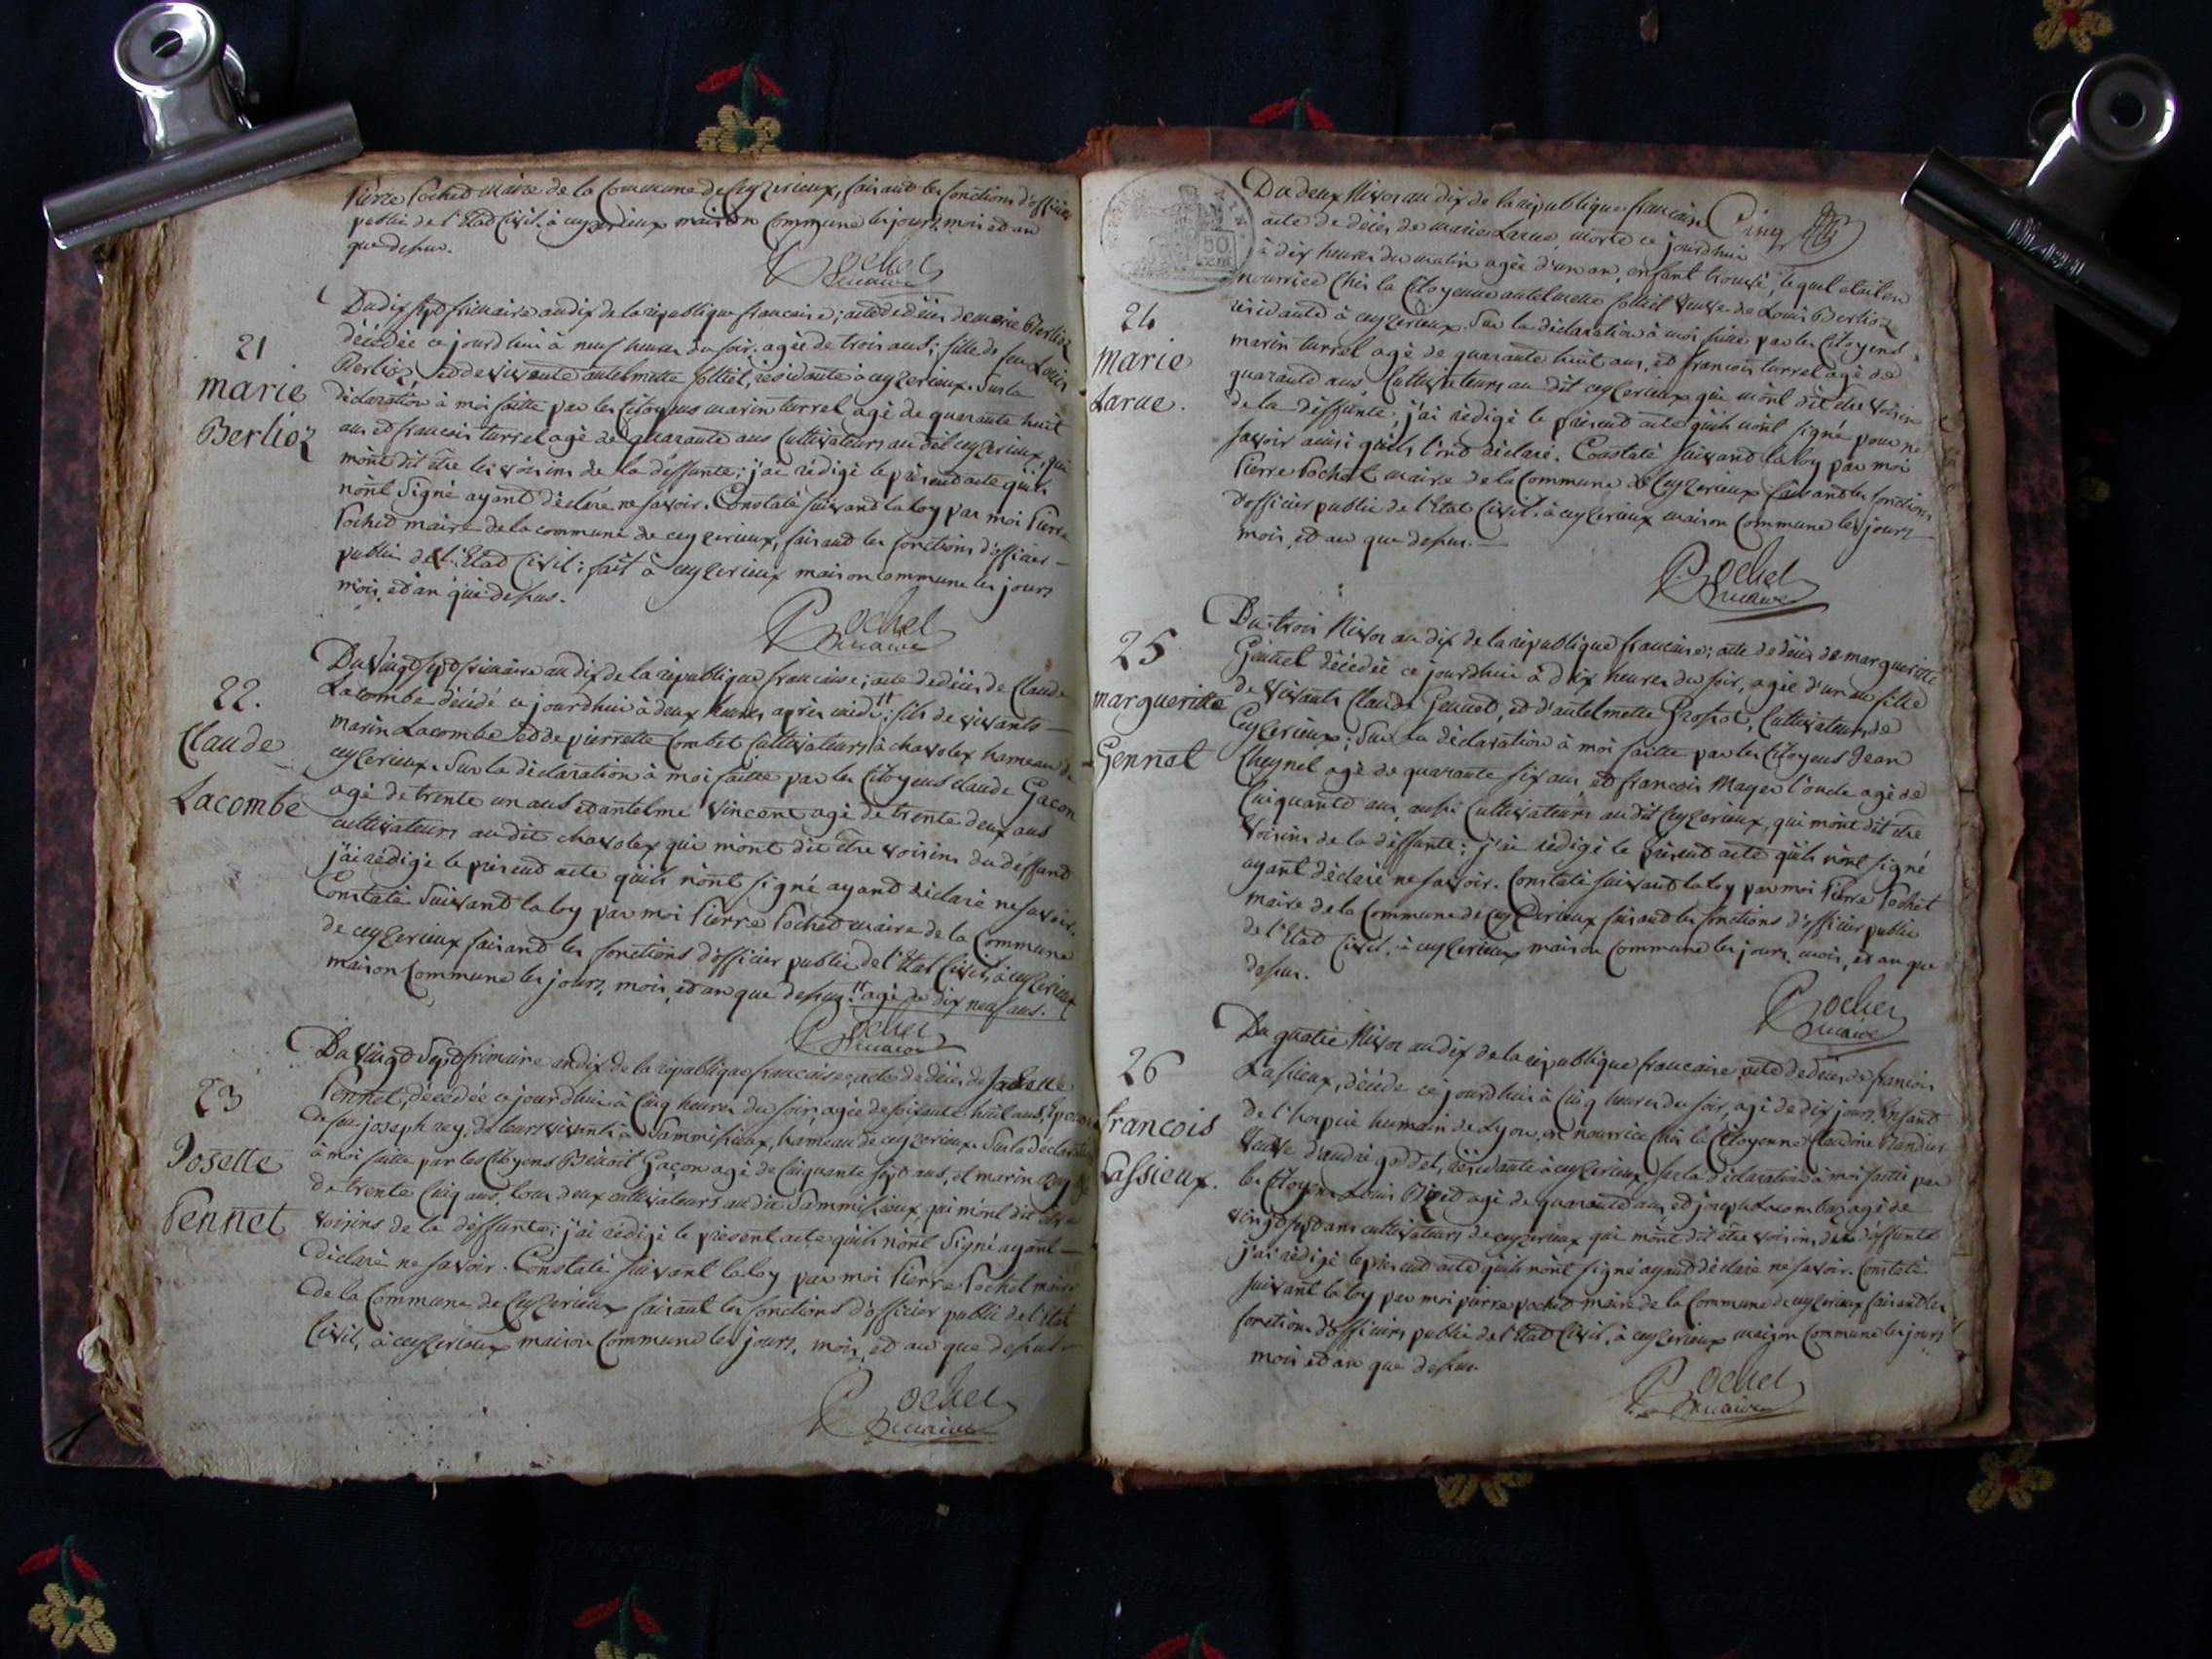 Pierre Pochet maire de la Commune de Ceyzerieux, faisand les fonctions d'officier
public de l'Etad Civil. à ceyzerieux maison Commune les jours, mois et an
que dessus.
Pochet
maire
21
marie
Berlioz
Du dix sept frimaire an dix de la republique francaise; acte de décès de marie Berlioz
décédée ce jourd'hui à neuf heures du soir. agée de trois ans; fille de feu Louis
Berlioz, et de vivante antelmette folliet, residante à ceyzerieux. Sur la
déclaration à moi faitte par les Citoyens marin turrel agé de quarante huit
ans et francois turrel agé de quarante ans Cultivateurs au dit ceyzerieux, qui
m'ont dit être les voisins de la deffunte; j'ai rédigé le présend acte qu'ils
n'ont Signé ayand déclaré ne savoir. Constaté suivand la loy par moi Pierre
Pochet maire de la commune de ceyzerieux, faisand les fonctions d'officier
public de l'Etad Civil: fait à ceyzerieux maison commune les jours
mois, et an que dessus.
Pochet
maire
22.
Claude
Lacombe
Du Vingt sept frimaire an dix de la republique francaise; acte de décès de Claude
Lacombe décédé ce jourd'hui à deux heures après midi;" fils de vivants
marin Lacombe et de pierrette Combet Cultivateurs à chavolex hameau de
ceyzerieux. Sur la déclaration à moi faitte par les Citoyens claude Gacon
agé de trente un ans et antelme Vincent agé de trente deux ans
cultivateurs au dit chavolex qui m'ont dit être voisins du deffund
j'ai rédigé le présend acte qu'ils n'ont signé ayand déclaré ne savoir.
Constaté Suivand la loy par moi Pierre Pochet maire de la Commune
de ceyzerieux faisand les fonctions d'officier public de l'Etat Civil, à ceyzerieux
maison Commune les jours, mois, et an que dessus. " agé de dix neuf ans.
Pochet
maire
23
Josette
Pennet
Du Vingt Sept frimaire an dix de la republique francaise; acte de décès de Josette
Pennet, décédée ce jourd'hui à Cinq heures du soir, agée de soixante huit ans, Epouse
de feu joseph rey, de leurs vivants à Sammisieux, hameau de ceyzerieux. Sur la déclaration
à moi faitte par les Citoyens Benoit Gaçon agé de Cinquante sept ans, et marin Rey
de trente Cinq ans, tous deux cultivateurs au dit Sammisieux, qui m'ont dit être
voisins de la deffunte; j'ai rédigé le présent acte qu'ils n'ont Signé ayant
déclaré ne savoir. Constaté suivant la loy par moi Pierre Pochet maire
de la Commune de Ceyzerieux faisant les fonctions d'officier public de l'Etat
Civil, à ceyzerieux maison Commune les jours, mois, et an que dessus
Pochet
maire
50
Cent
Cinq
24
Marie
Larue.
Du deux Nivos an dix de la republique francaise
acte de décès de marie Larue, morte ce jourd'hui
à dix heures du matin agée d'un an, enfant trouvé, lequel etait en
nourrice Chés la Citoyenne antelmette folliet Veuve de Louis Berlioz
residante à ceyzerieux. Sur la déclaration à moi faitte par les Citoyens
marin turrel agé de quarante huit ans, et francois turrel agé de
quarante ans Cultivateurs au dit ceyzerieux qui m'ont dit être Voisins
de la deffunte; j'ai rédigé le présend acte qu'ils n'ont signé pour ne
savoir ainsi qu'ils l'ont déclaré. Constaté suivand la loy par moi
Pierre Pochet maire de la Commune de Ceyzerieux faisand les fonctions
d'officier public de l'Etat Civil. à ceyzerieux maison Commune les jours
mois, et an que dessus.
Pochet
maire
25
margueritte
Gennet
Du trois Nivos an dix de la republique francaise; acte de décès de margueritte
Gennet décédée ce jourd'hui à dix heures du soir, agée d'un an fille
de Vivants Claude Gennet, et d'antelmette Cultivateurs de
Ceyzerieux; Sur la déclaration à moi faitte par les Citoyens Jean
Cheynel agé de quarante six ans, et francois Mayer l'oncle agé de
Cinquante ans, aussi Cultivateurs au dit Ceyzerieux, qui m'ont dit être
Voisins de la deffunte; j'ai rédigé le présend acte qu'ils n'ont signé
ayant déclaré ne savoir. Constaté suivand la loy par moi Pierre Pochet
maire de la Commune de Ceyzerieux faisand les fonctions d'officier public
de l'Etad Civil. à ceyzerieux maison Commune les jours, mois, et an que
dessus.
Pochet
maire
26
francois
Lassieux.
Du quatre Nivos an dix de la republique francaise, acte de décès de francois
Lassieux, décédé ce jourd'hui à Cinq heures du soir, agé de dix jours, Enfand
de l'hospice humain de Lyon, en nourrice chés la Citoyenne Claudine
Veuve d'andré goddet, residante à ceyzerieux, sur la déclaration à moi faitte par
les Citoyens Louis Bizet agé de quarante ans et joseph Lacombe agé de
vingt sept ans cultivateurs de ceyzerieux qui m'ont dit être voisins de deffunt
j'ai rédigé le présend acte qu'ils n'ont signé ayand déclaré ne savoir. Constaté
suivant la loy par moi pierre pochet maire de la Commune de ceyzerieux faisand les
fonctions d'officiers public de l'Etad Civil, à ceyzerieux maison Commune les jours
mois et an que dessus.
Pochet
maire